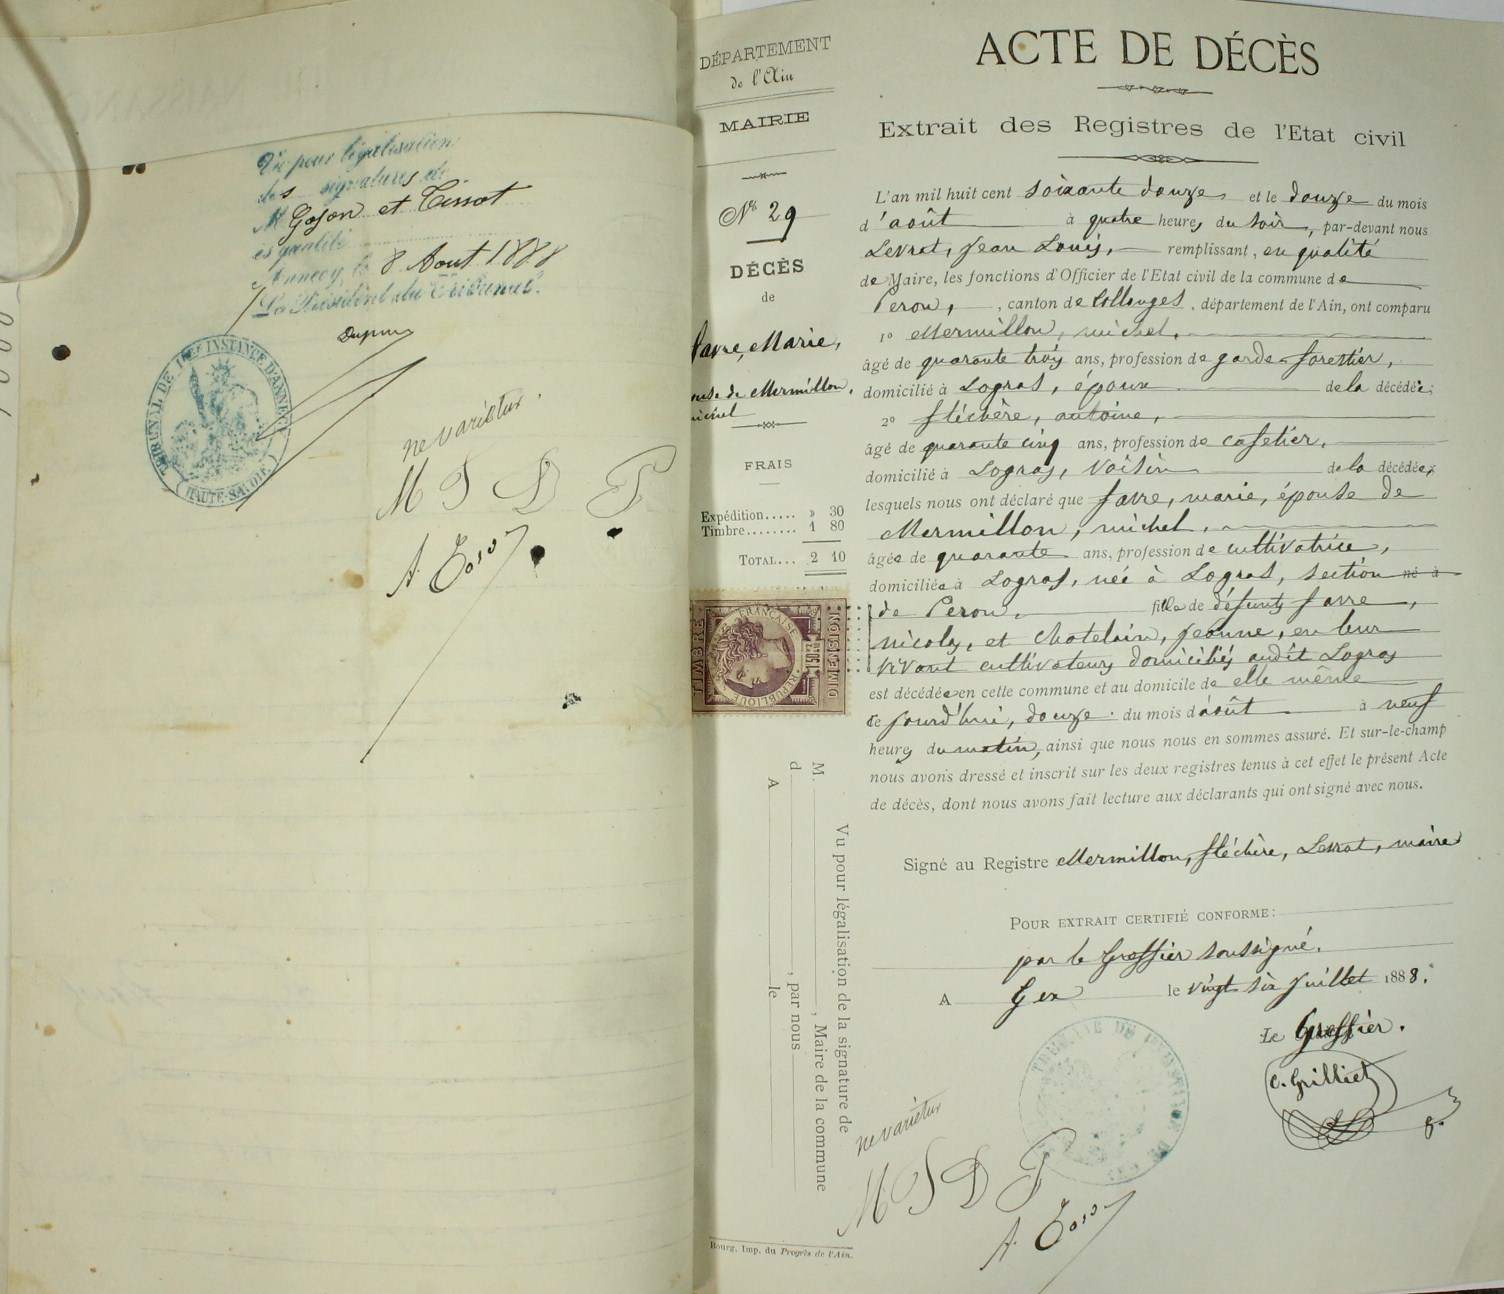 Vu pour légalisation
des signatures de
M Gojon et Tissot
ès qualité
Annecy, le 8 Aout 1888
Le Président du Tribunal.
Dupuy
TRIBUNAL DE 1ERE INSTANCE D'ANNECY
(HAUTE-SAVOIE)
ne varietur.
M S D P
DÉPARTEMENT
de l'Ain
MAIRIE
N° 29
DÉCÈS
de
Favre, Marie,
de Mermillon,
FRAIS
Expédition..... » 30
Timbre........ 1 80
TOTAL... 2 10
TIMBRE
RÉPUBLIQUE FRANÇAISE
Vu pour légalisation de la signature de
M. , Maire de la commune
d , par nous
A le
Bourg, Imp. du Progrès de l'Ain.
ACTE DE DÉCÈS
Extrait des Registres de l'Etat civil
L'an mil huit cent soixante douze et le douze du mois
d'août à quatre heures du soir, par-devant nous
Levrat, Jean Louis, remplissant, en qualité
de Maire, les fonctions d'Officier de l'Etat civil de la commune de
Peron, , canton de Collonges, département de l'Ain, ont comparu
1° Mermillon, michel,
âgé de quarante trois ans, profession de garde-forestier,
domicilié à Logras, époux de la décédée;
2° fléchère, antoine,
âgé de quarante cinq ans, profession de cafetier,
domicilié à Logras, voisin de la décédée;
lesquels nous ont déclaré que favre, marie, épouse de
Mermillon, michel,
âgée de quarante ans, profession de cultivatrice,
domiciliée à Logras, née à Logras, section né à
de Peron, fille de défunts favre,
nicolas, et Chatelain, Jeanne, en leur
vivant cultivateurs domiciliés audit Logras
est décédée en cette commune et au domicile de elle même
ce jourd'hui, douze du mois d'août à neuf
heures du matin, ainsi que nous nous en sommes assuré. Et sur-le-champ
nous avons dressé et inscrit sur les deux registres tenus à cet effet le présent Acte
de décès, dont nous avons fait lecture aux déclarants qui ont signé avec nous.
Signé au Registre Mermillon, fléchère, Levrat, maire
POUR EXTRAIT CERTIFIÉ CONFORME:
par le Greffier soussigné.
A Gex le vingt six Juillet 1888.
Le Greffier.
C. Grilliet
ne varietur
M S D P